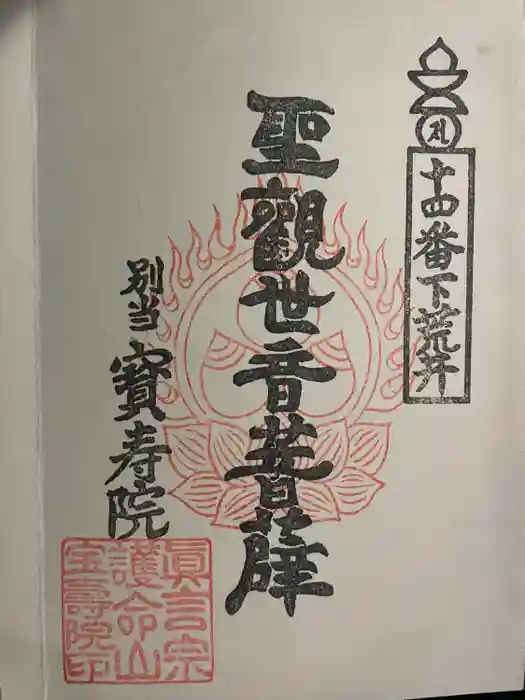 札
十四番下荒井
聖観世音菩薩
別当寳寿院
眞言宗
護命山
宝壽院印